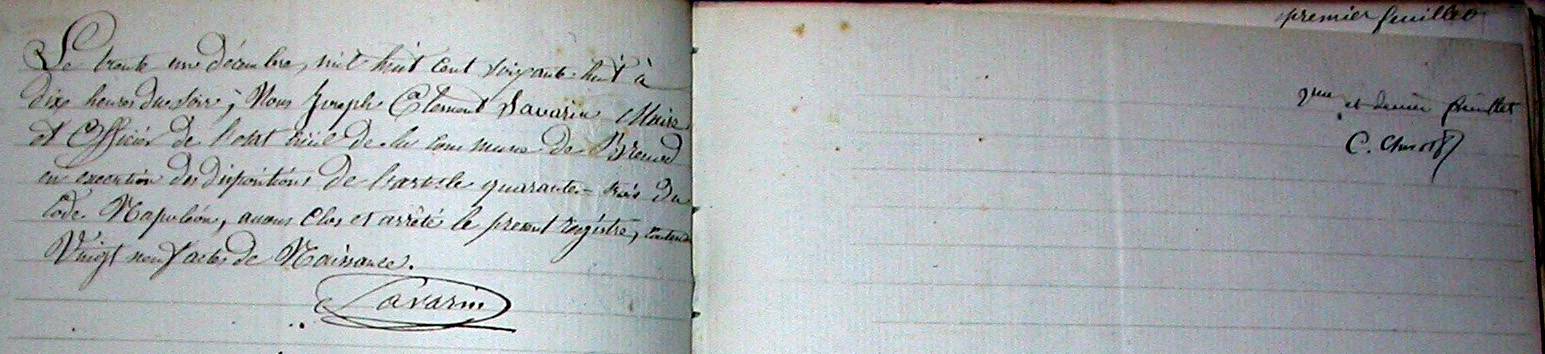 Le trente un décembre, mil huit cent soixante huit à
dix heures du soir; Nous Joseph Clément Savarin Maire
et Officier de l'état civil de la commune de Brenod
en execution des dispositions de l'article quarante-trois du
Code Napoléon, avons clos et arrêté le present registre, contenant
Vingt neuf actes de Naissance.
Savarin
premier feuillet
et dernier feuillet
C.